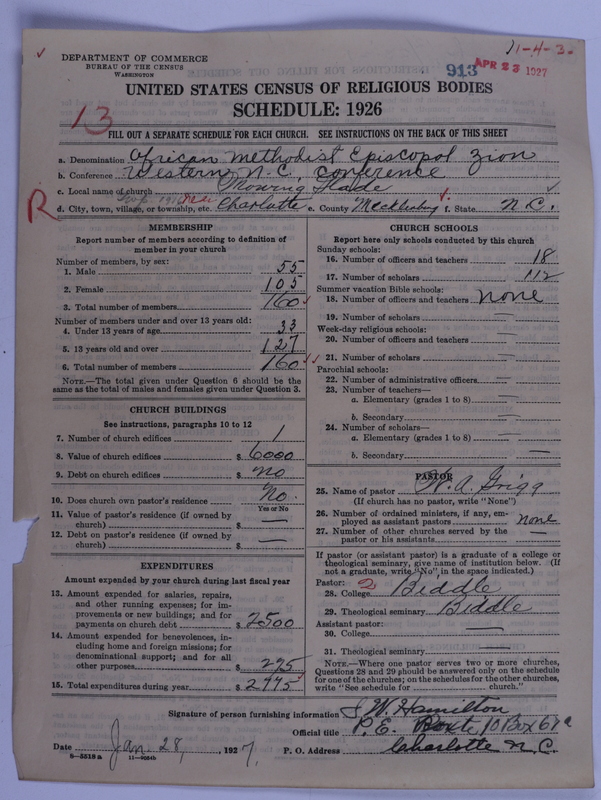 11-4-3-
DEPARTMENT OF COMMERCE
BUREAU OF THE CENSUS
WASHINGTON
913 APR 23 1927
UNITED STATES CENSUS OF RELIGIOUS BODIES
SCHEDULE: 1926
13
FILL OUT A SEPARATE SCHEDULE FOR EACH CHURCH. SEE INSTRUCTIONS ON THE BACK OF THIS SHEET
a. Denomination African Methodist Episcopal Zion
b. Conference Western N.C. Conference
c. Local name of church
R d. City, town, village, or township, etc. Charlotte e. County Mecklenburg f. State N.C.
MEMBERSHIP
Report number of members according to definition of
member in your church
Number of members, by sex:
1. Male 55
2. Female 105
3. Total number of members 160
Number of members under and over 13 years old:
4. Under 13 years of age 33
5. 13 years old and over 127
6. Total number of members 160
NOTE.—The total given under Question 6 should be the
same as the total of males and females given under Question 3.
CHURCH BUILDINGS
See instructions, paragraphs 10 to 12
7. Number of church edifices 1
8. Value of church edifices $ 6000
9. Debt on church edifices $ No
10. Does church own pastor's residence No.
Yes or No
11. Value of pastor's residence (if owned by
church) $ —
12. Debt on pastor's residence (if owned by
church) $ —
EXPENDITURES
Amount expended by your church during last fiscal year
13. Amount expended for salaries, repairs,
and other running expenses; for im-
provements or new buildings; and for
payments on church debt $ 2500
14. Amount expended for benevolences, in-
cluding home and foreign missions; for
denominational support; and for all
other purposes $
15. Total expenditures during year $
CHURCH SCHOOLS
Report here only schools conducted by this church
Sunday schools:
16. Number of officers and teachers 18
17. Number of scholars 112
Summer vacation Bible schools:
18. Number of officers and teachers none
19. Number of scholars —
Week-day religious schools:
20. Number of officers and teachers —
21. Number of scholars —
Parochial schools:
22. Number of administrative officers —
23. Number of teachers—
a. Elementary (grades 1 to 8) —
b. Secondary —
24. Number of scholars—
a. Elementary (grades 1 to 8) —
b. Secondary —
PASTOR
25. Name of pastor W. A. Grigg
(If church has no pastor, write "None")
26. Number of ordained ministers, if any, em-
ployed as assistant pastors none
27. Number of other churches served by the
pastor or his assistants —
If pastor (or assistant pastor) is a graduate of a college or
theological seminary, give name of institution below. (If
not a graduate, write "No", in the space indicated.)
Pastor: 2
28. College Biddle
29. Theological seminary Biddle
Assistant pastor:
30. College —
31. Theological seminary —
NOTE.—Where one pastor serves two or more churches,
Questions 28 and 29 should be answered only on the schedule
for one of the churches; on the schedules for the other churches,
write "See schedule for church."
Signature of person furnishing information J. W. Hamilton
Official title P.E.
Date Jan. 28, 1927. P. O. Address Charlotte N.C.
8—5518a